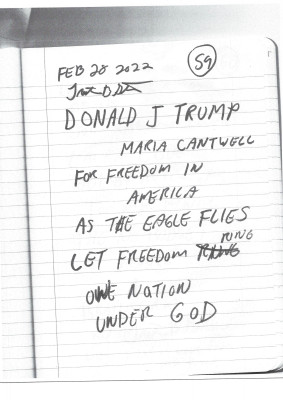 FEB 28 2022
59
DONALD J TRUMP
MARIA CANTWELL
FOR FREEDOM IN
AMERICA
AS THE EAGLE FLIES
LET FREEDOM RING
ONE NATION
UNDER GOD